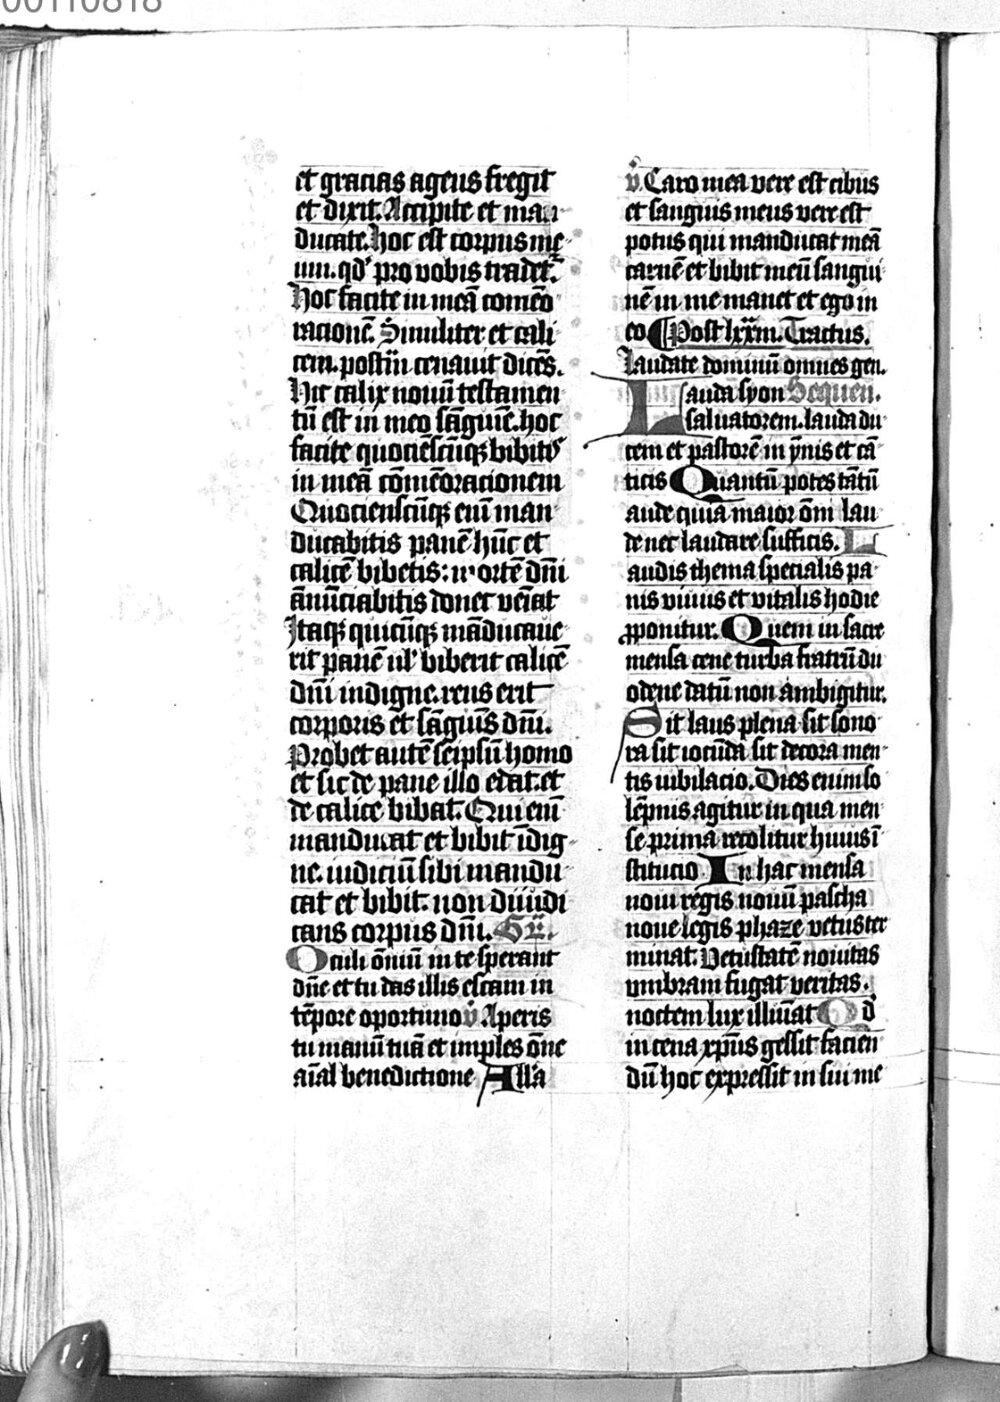 00110818
et gracias agens fregit
et dixit. Accipite et man
ducate. hoc est corpus me
um. qd' pro vobis tradet̄.
Hoc facite in meā comēo
racionē. Similiter et cali
cem. postq̄ cenauit dicēs.
Hic calix nouū testamen
tū est in meo sāguīe. hoc
facite quociēscūqꝫ bibitis
in meā comēoracionem
Quocienscūqꝫ enī man
ducabitis panē hūc et
calicē bibetis: mortē dn̄i
ānūciabitis donec veīat
Itaqꝫ quicūqꝫ māducaue
rit panē ul' biberit calicē
dn̄i indigne. reus erit
corporis et sāguīs dn̄i.
Probet autē seipsū homo
et sic de pane illo edat. et
de calice bibat. Qui enī
manducat et bibit īdig
ne. iudiciū sibi mandu
cat et bibit. non diiudi
cans corpus dn̄i. Gr̄.
Oculi ōniū in te sperant
dn̄e et tu das illis escam in
tēpore oportuno v̄ Aperis
tu manū tuā et imples ōne
aīal benedictione Alla
v̄. Caro mea vere est cibus
et sanguis meus vere est
potus qui manducat meā
carnē et bibit meū sangui
nē in me manet et ego in
eo Post lxxm. Tractus.
Laudate dominū omnes gen.
Lauda syon Sequen.
saluatorem. lauda du
cem et pastorē in ymnis et cā
ticis Quantū potes tātū
aude quia maior ōni lau
de nec laudare sufficis. L
audis thema specialis pa
nis viuus et vitalis hodie
ꝓponitur. Quem in sacre
mensa cene turba fratrū du
odene datū non ambigitur.
Sit laus plena sit sono
ra sit iocūda sit decora men
tis iubilacio. Dies enim so
lēpnis agitur in qua men
se prima recolitur huius ī
stitucio In hac mensa
noui regis nouū pascha
noue legis phaze vetus ter
minat. Vetustatē nouitas
vmbram fugat veritas.
noctem lux illuīat Qd
in cena xp̄us gessit facien
dū hoc expressit in sui me